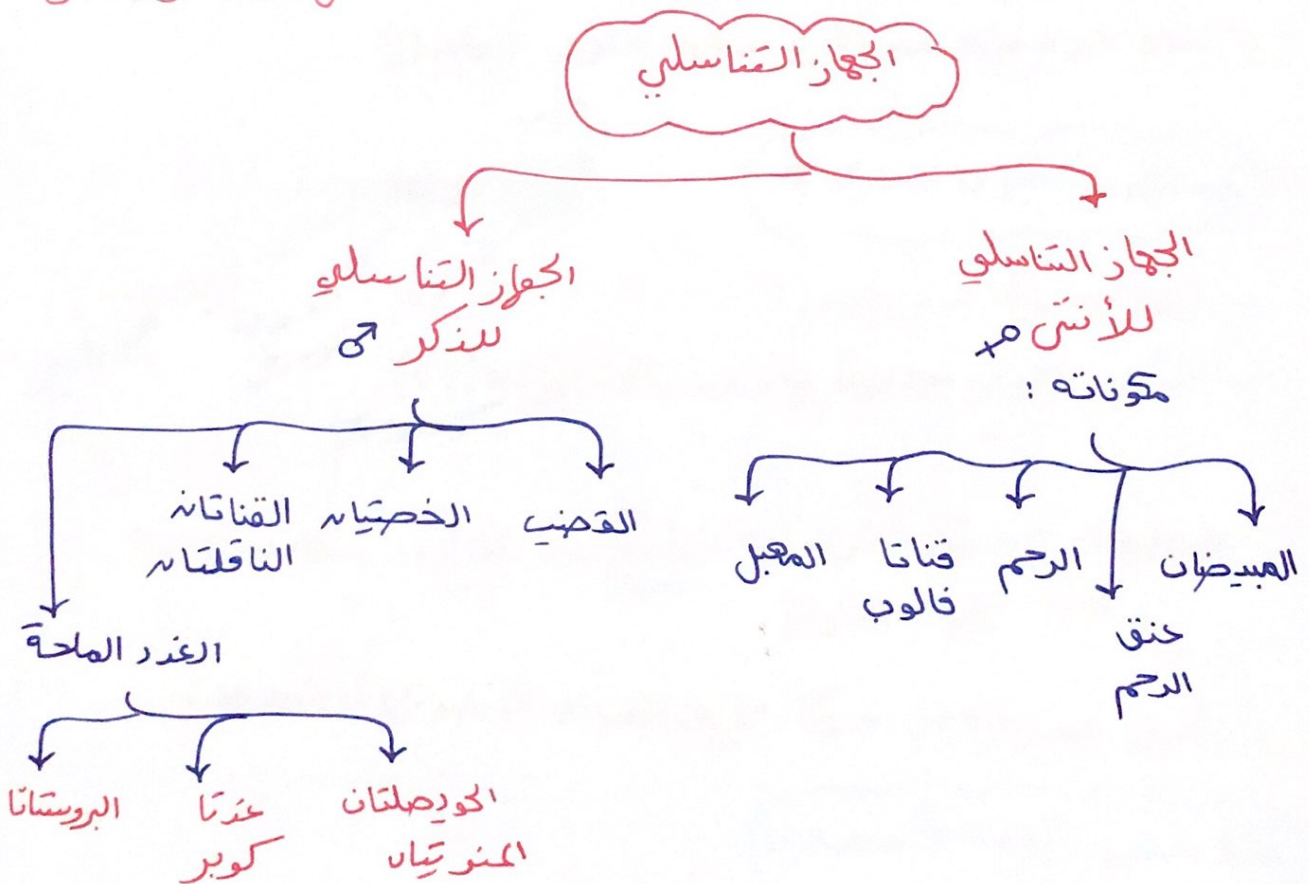 الجهاز التناسلي
الجهاز التناسلي
للأنثى ♀
مكوناته :
المبيضان
عنق
الرحم
الرحم
قناتا
فالوب
المهبل
الجهاز التناسلي
للذكر ♂
القضيب
الخصيتان
القناتان
الناقلتان
الغدد الملحقة
الحويصلتان
المنويتان
غدتا
كوبر
البروستاتا